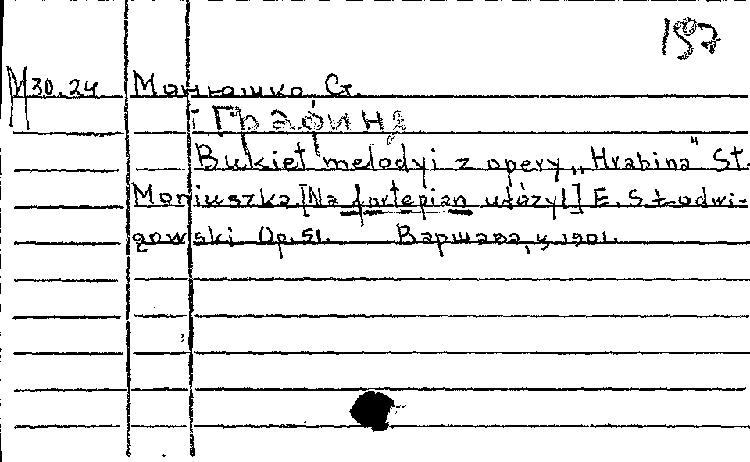 197
М30.24 Монюшко, С.
[Графиня
Bukiet melodyi z opery „Hrabina" St.
Moniuszka [Na fortepian ułożył] E. Słodwi-
gowski Op. 51. Варшава, ц. 1901.